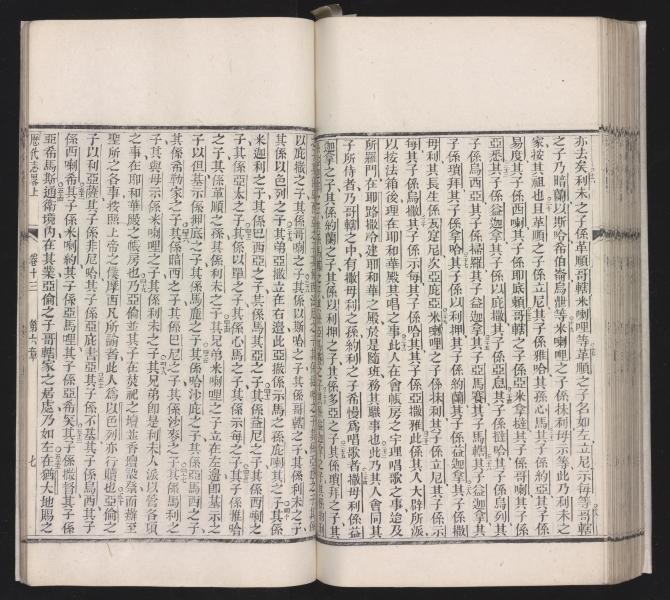 亦去矣利未之子係革順哥轄米唎哩等革順之子名如左立尼示每等哥轄
之子乃暗蘭以斯哈希伯崙烏泄等米唎哩之子係抹利母示等此乃利未之
家按其祖也且革順之子係立尼其子係雅哈其孫心馬其子係約亞其子係
易度其子係西喇其子係耶底賴哥轄之子係亞米拿撻其子係哥喇其子係
亞悉其子係益迦拿其子係以庇撒其子係亞息其子係撻哈其子係烏列其
子係烏西亞其子係掃羅其子益迦拿其子亞馬賽其子馬轄其子益迦拿其
子係瑣拜其子係拿哈其子係以利押其子係約蘭其子係益迦拿其子係撒
母利其長生係瓦定尼次亞庇亞米唎哩之子係抹利其子係立尼其子係示
每其子係烏撒其子係示每其子係哈其其子係亞撒雅此係其人大辟所派
以按法箱後理在耶和華殿其唱之事此人在會帳房之宇理唱歌之事迨及
所羅門在耶路撒冷建耶和華之殿於是隨班務其職事也此乃其人會同其
子所侍者乃哥轄之中有撒母利之孫約利之子希慢為唱歌者撒母利係益
迦拿之子其係約蘭之子其係以利押之子其係多亞之子其係瑣拜之子其
以庇撒之子其係哥喇之子其係以斯哈之子其係哥轄之子其係利未之子
其係以色列之子其弟亞撒立在右邊此亞撒係示馬之孫庇唎其之子其係
米迦利之子其係巴西亞之子其係馬其亞之子其係益尼之子其係西唎之
子其係亞太之子其係以單之子其係心馬之子其係示每之子其係雅哈
之子其係革順之子其係利未之子其兄弟米唎哩之子立在左邊即基示之
子以但基示係押底之子其係馬鹿之子其係哈沙庇之子其係亞馬西之子
其係希勒家之子其係暗西之子其係巴尼之子其係沙麥之子其係馬利之
子其係母示之子其係米唎哩之子其係利未之子其兄弟即是利未人派以為各項
之事在耶和華殿之帳房也乃亞倫並其子在焚祀之壇並香壇設祭而辦至
聖所之各事按照上帝之僕摩西凡所諭者此人為以色列亦行贖也亞倫之
子以利亞薩其子係非尼哈其子係亞庇書亞其子係不基其子係烏西其子
係西喇希其子係米喇約其子係亞馬哩其子係亞希突其子係撒督其子係
亞希馬斯通衛境內在其業亞倫之子哥轄家之居處乃如左在猶大地賜之
歷代志畧上 卷十三 第六章 七